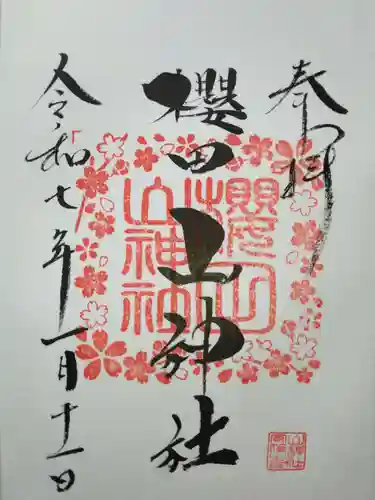 奉拝
櫻田山神社
櫻田山神社
令和七年一月十一日